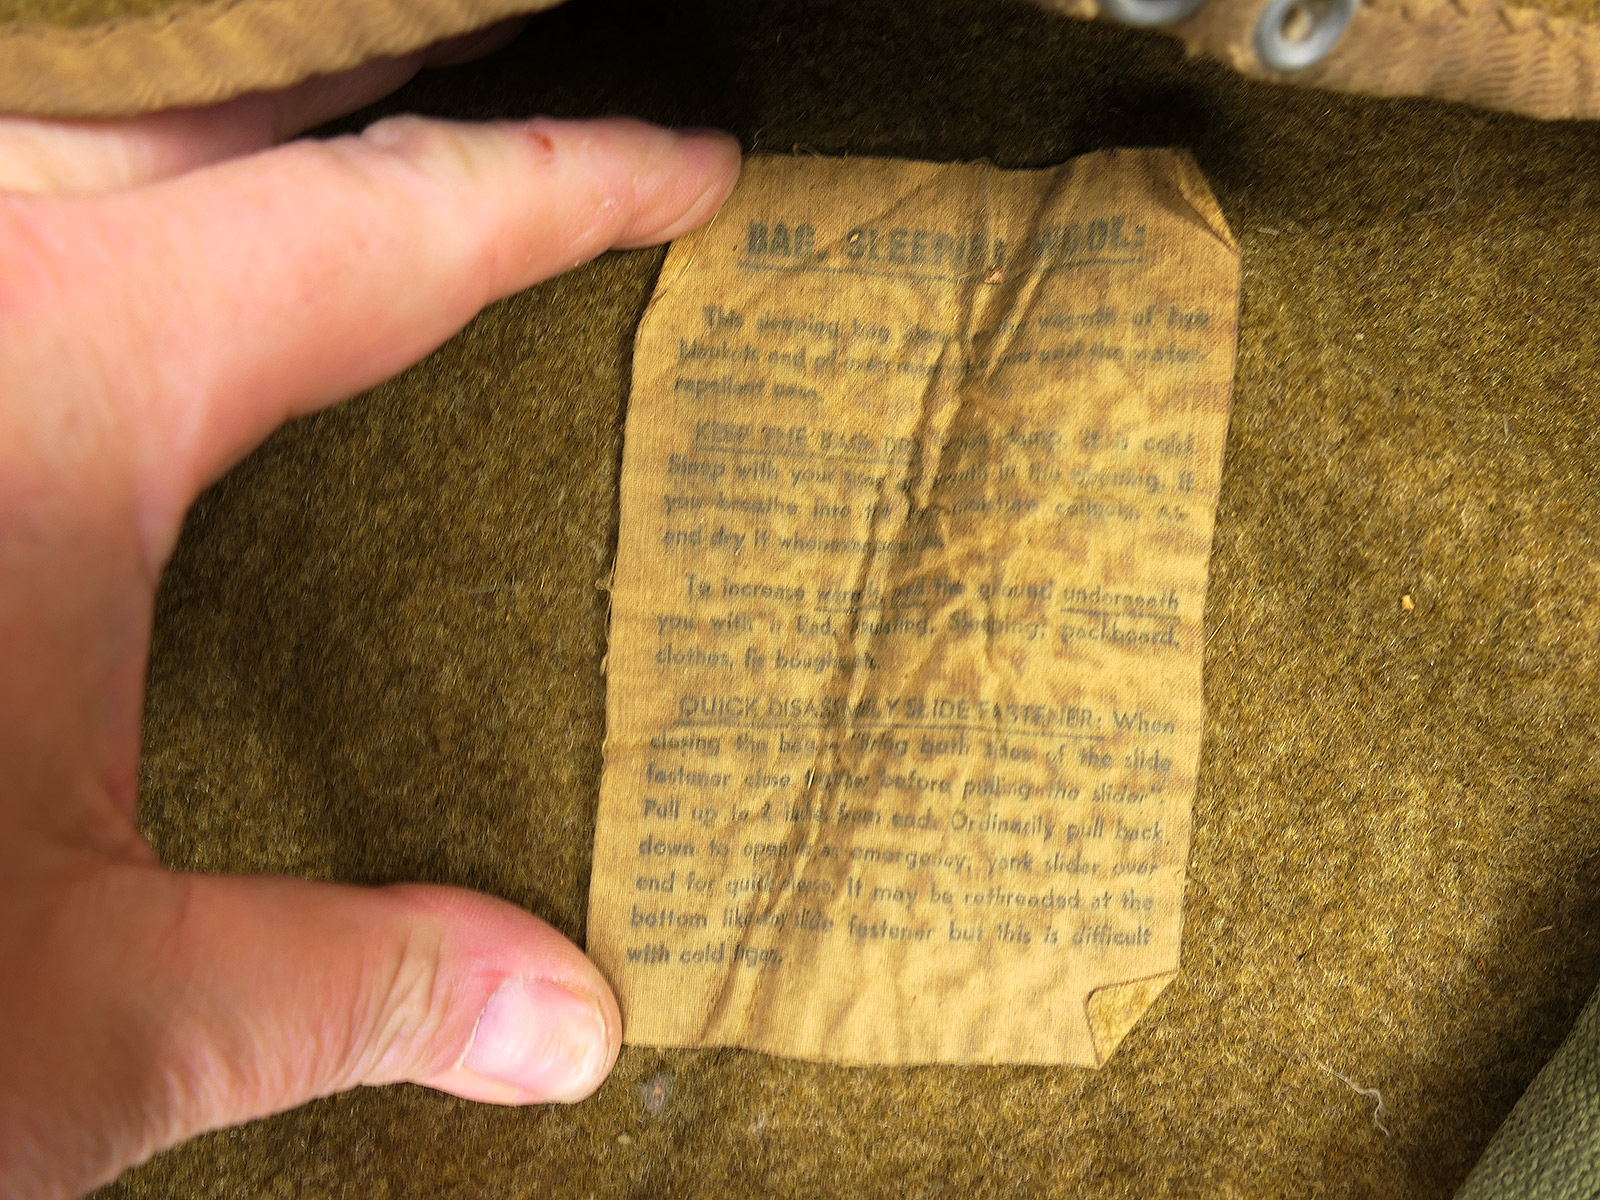 BAG, SLEEPING, WOOL:
This sleeping bag the warmth of two
blankets and and the water-
repellent case.
KEEP THE BAG DRY damp, it is cold.
Sleep with your nose mouth in the opening. If
you breathe into the bag moisture collects. Air
and dry it whenever
To increase warmth, pad the ground underneath
you with a Pad, Insulating, Sleeping; packboard,
clothes, fir boughs,
QUICK DISASSEMBLY SLIDE FASTENER: When
closing the bag— Bring both sides of the slide
fastener close before pulling the slider".
Pull up to 2 from end. Ordinarily pull back
down to open emergency, yank slider over
end for quick It may be rethreaded at the
bottom like any slide fastener but this is difficult
with cold